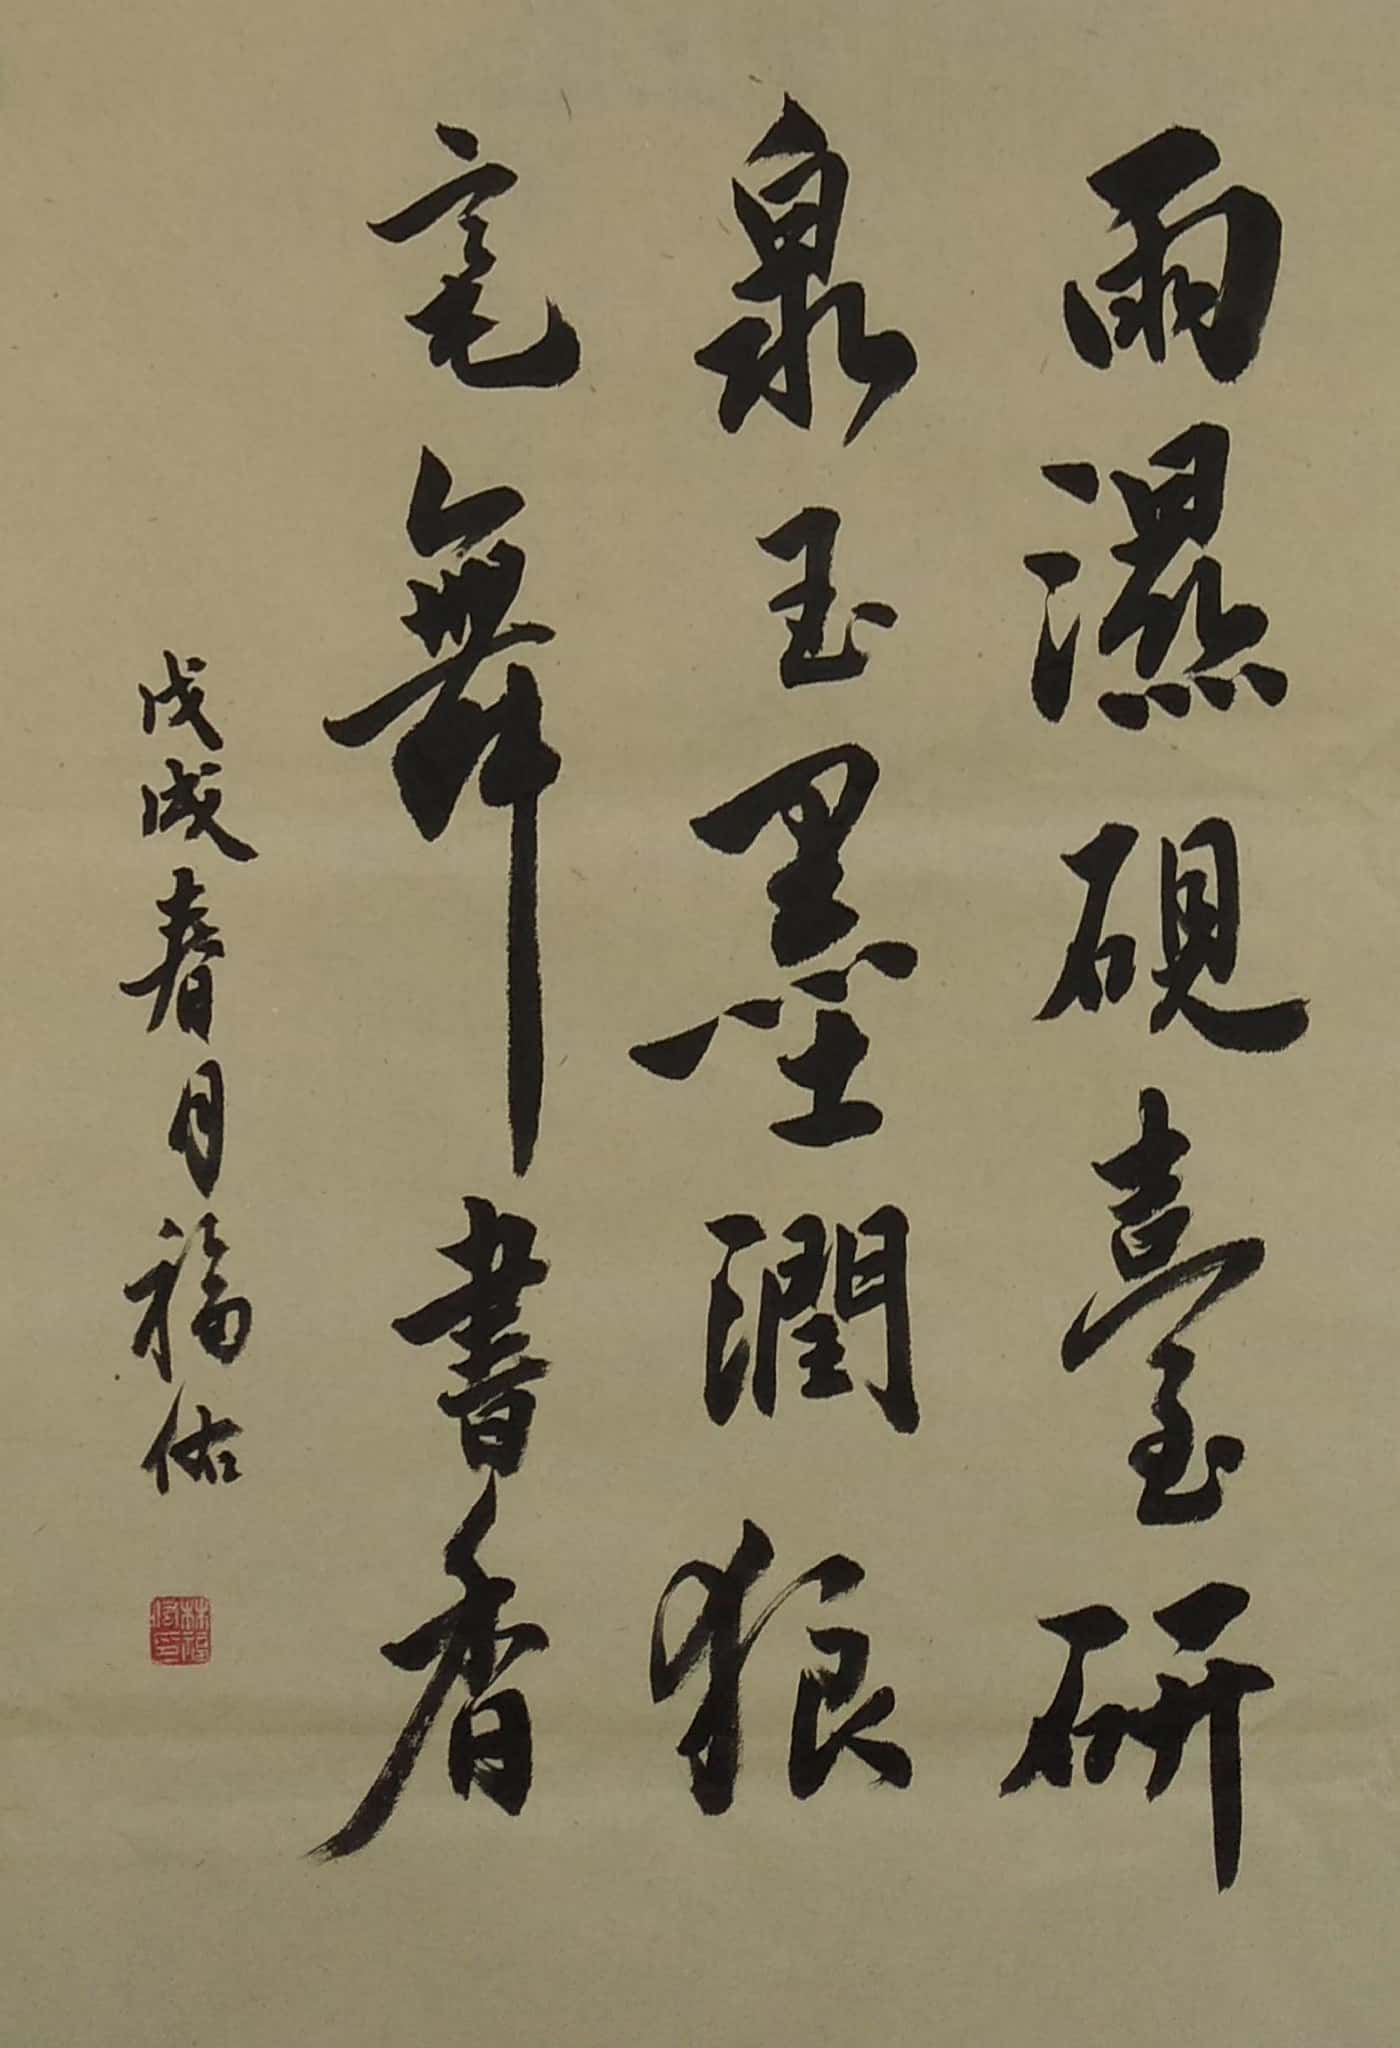 雨濕硯臺研
泉玉墨潤狼
毫舞書香
戊戌春月福佑
林福佑印